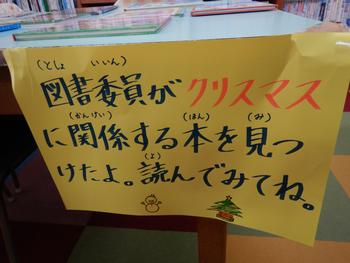 (としょ いいん)
図書委員が クリスマス
(かんけい) (ほん) (み)
に関係する本を見つ
(よ)
けたよ。読んでみてね。